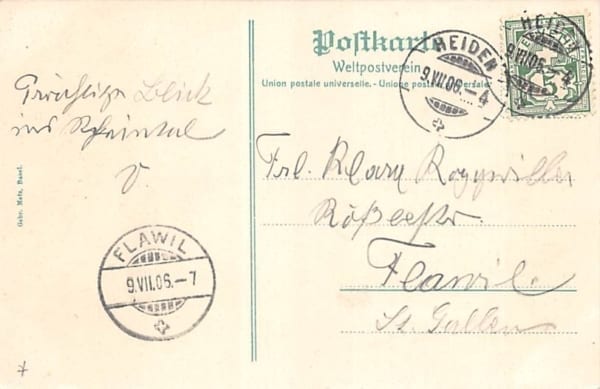 Postkarte
Weltpostverein
Union postale universelle. - Unione postale universale
HEIDEN
9.VII.06.-4
HEIDEN
9.VII.06.-4
5
Prächtiger Blick
ins Rheintal
Frl. Klary Roggwiller
Flawil
St. Gallen
FLAWIL
9.VII.06.-7
Gebr. Metz, Basel.